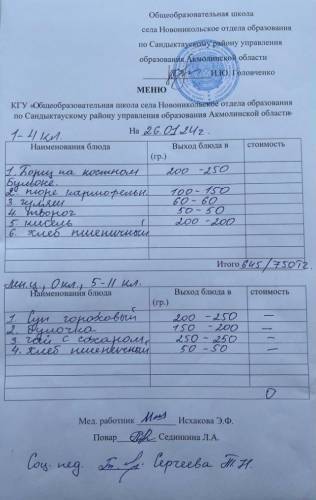 Общеобразовательная школа
села Новоникольское отдела образования
по Сандыктаускому району управления
образования Акмолинской области
И.Ю. Головченко
МЕНЮ
КГУ «Общеобразовательная школа села Новоникольское отдела образования
по Сандыктаускому району управления образования Акмолинской области»
1-4 кл. На 26.01.24г.
Наименования блюда Выход блюда в (гр.) стоимость
1. Борщ на костном 200-250
бульоне.
2 пюре картофельн. 100-150
3 гуляш 60-60
4. творог 50-50
5. кисель 200-200
6. хлеб пшеничный
Итого 645/750тг.
0 кл., 5-11 кл.
Наименования блюда Выход блюда в (гр.) стоимость
1. Суп гороховый 200-250 –
2. Булочка 150-200 –
3. чай с сахаром 250-250 –
4. хлеб пшеничный 50-50 –
0
Мед. работник Исхакова Э.Ф.
Повар Сединкина Л.А.
Соц. пед. Сергеева Т.Н.